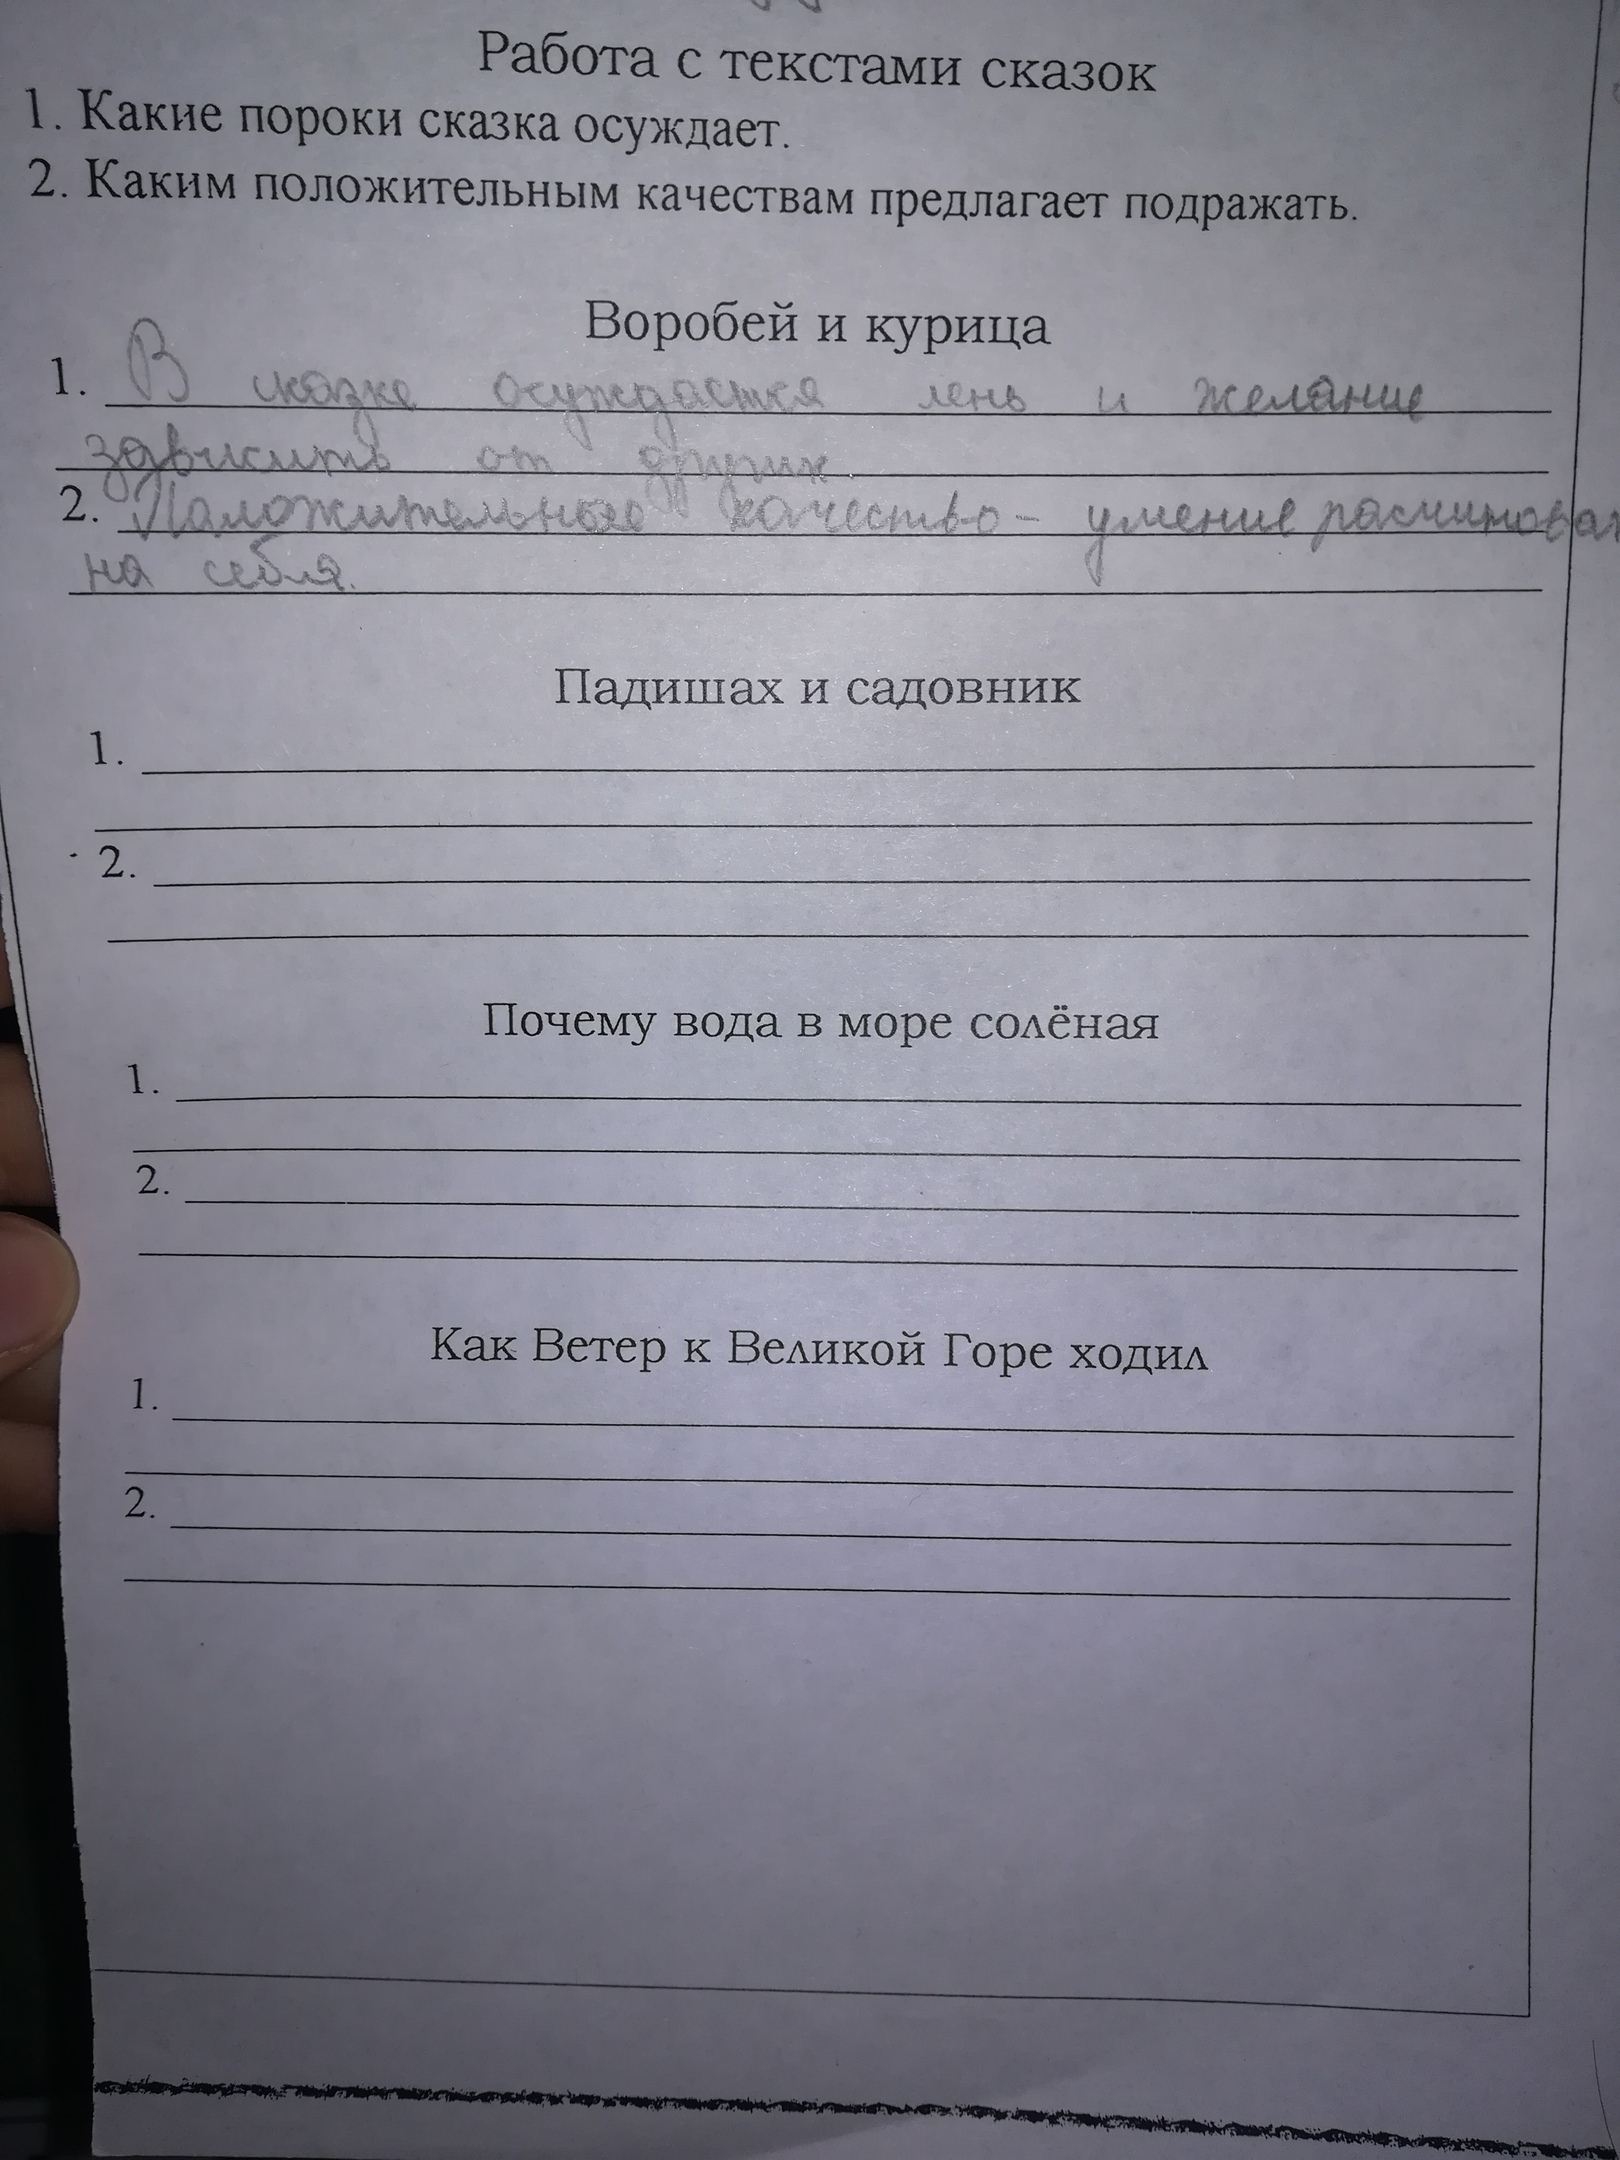 Работа с текстами сказок
1. Какие пороки сказка осуждает.
2. Каким положительным качествам предлагает подражать.
Воробей и курица
1. В сказке осуждается лень и желание
здвисить от других.
2. Положительное качество - умение расчитоват
на себля.
Падишах и садовник
1.
2.
Почему вода в море солёная
1.
2.
Как Ветер к Великой Горе ходил
1.
2.